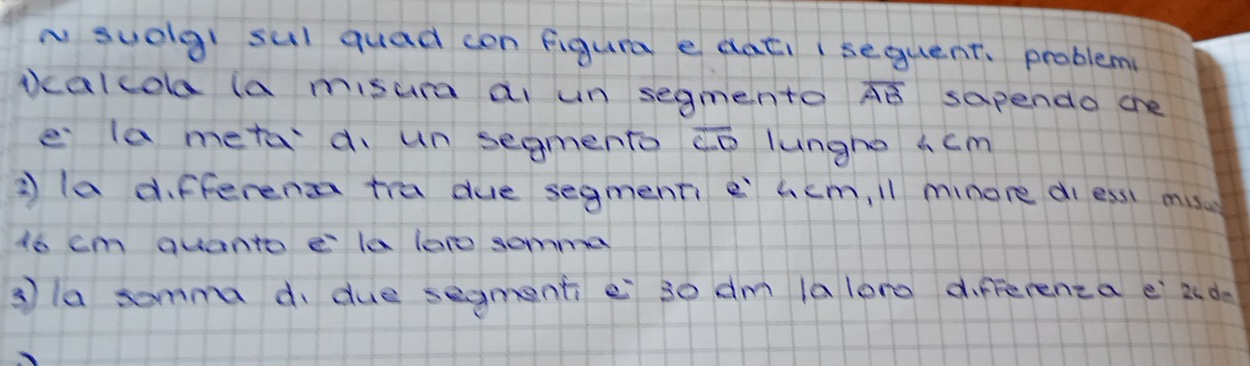 ~ svolgi sul quad con figura e dati i seguenti problemi
1) calcola la misura di un segmento AB sapendo che
e' la meta' di un segmento CD lungho 4 cm
2) la differenza tra due segmenti e' 4 cm, il minore di essi
16 cm quanto e' la loro somma
3) la somma di due segmenti e' 30 dm la loro differenza e' 24 dm